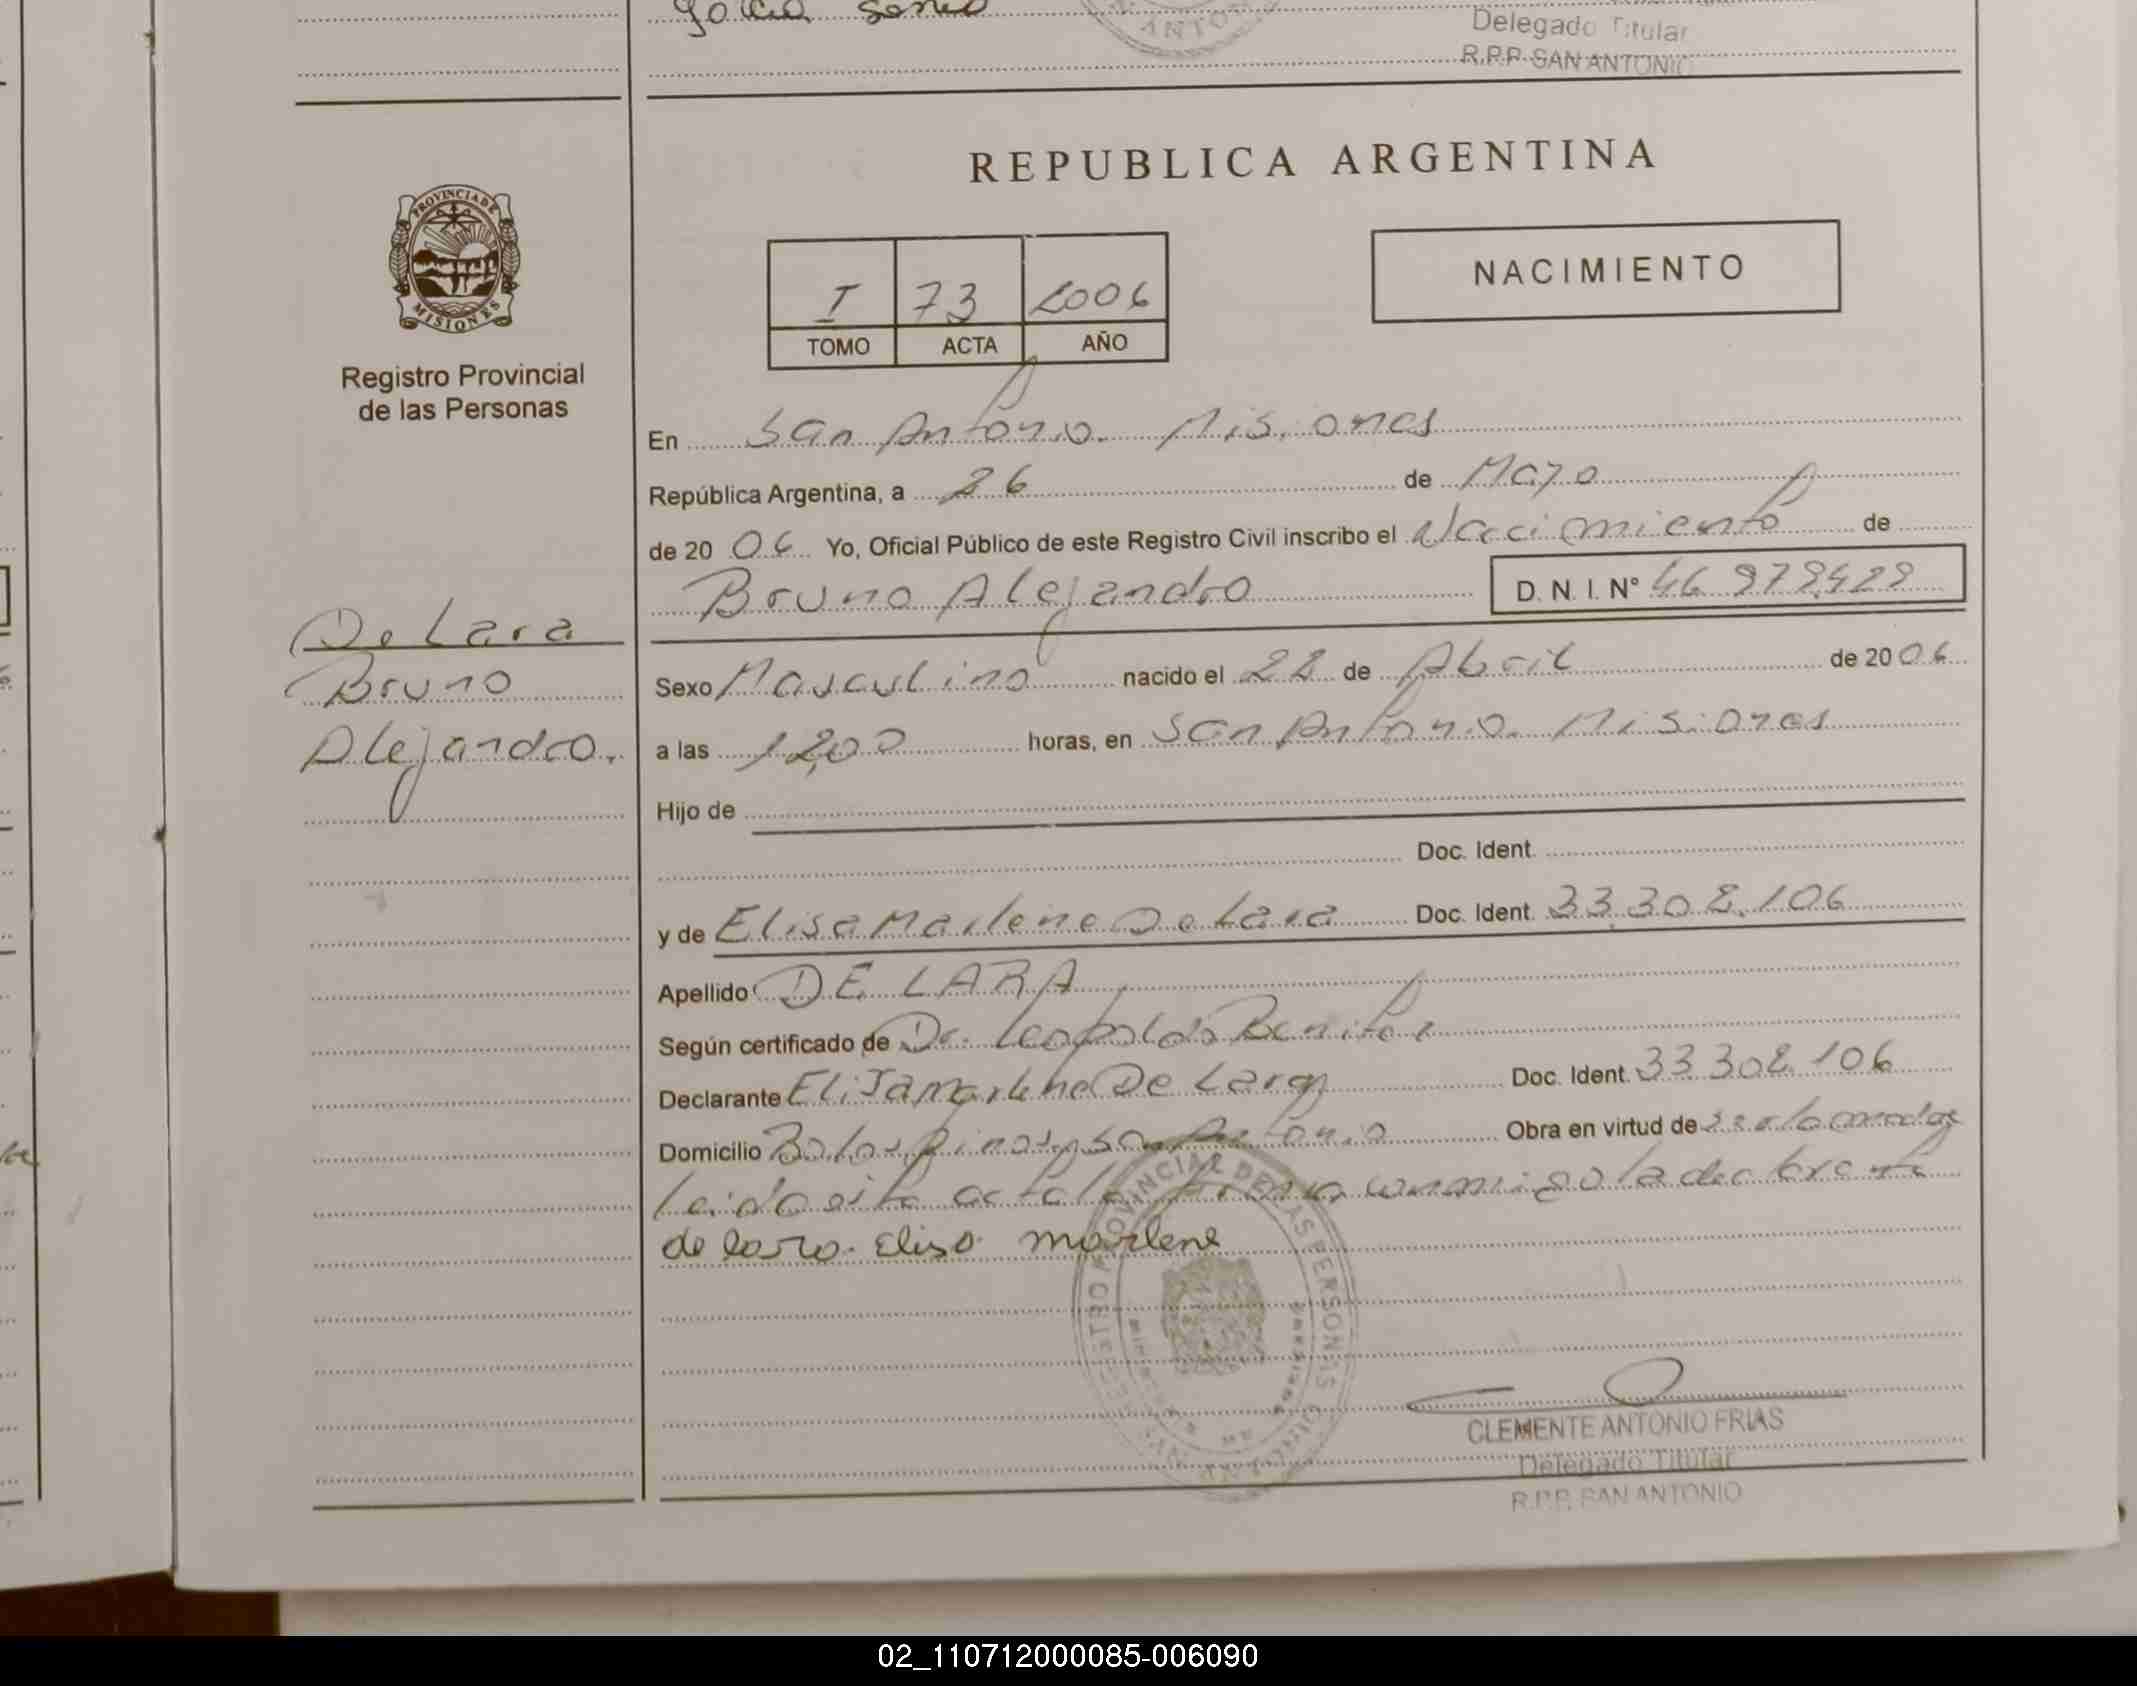 Delegado Titular
R.P.P. SAN ANTONIO
REPUBLICA ARGENTINA
PROVINCIA DE
MISIONES
Registro Provincial
de las Personas
I 73 2006
TOMO ACTA AÑO
NACIMIENTO
En San Antonio Misiones
República Argentina, a 26 de Mayo
de 20 06 Yo, Oficial Público de este Registro Civil inscribo el Nacimiento de
Bruno Alejandro D. N. I. Nº 46.979.429
De Lara
Bruno
Alejandro.
Sexo Masculino nacido el 28 de Abril de 20 06
a las 12,00 horas, en San Antonio Misiones
Hijo de
Doc. Ident.
y de Elisa Marlene De Lara Doc. Ident. 33.308.106
Apellido DE LARA
Según certificado de Dr. Leopoldo Benitez
Declarante Elisa Marlene De Lara Doc. Ident. 33.308.106
Domicilio San Antonio Obra en virtud de
leida esta acta la firma conmigo la declarante
de lara Elisa marlene
REGISTRO PROVINCIAL DE LAS PERSONAS
SAN ANTONIO
CLEMENTE ANTONIO FRIAS
Delegado Titular
R.P.P. SAN ANTONIO
02_110712000085-006090